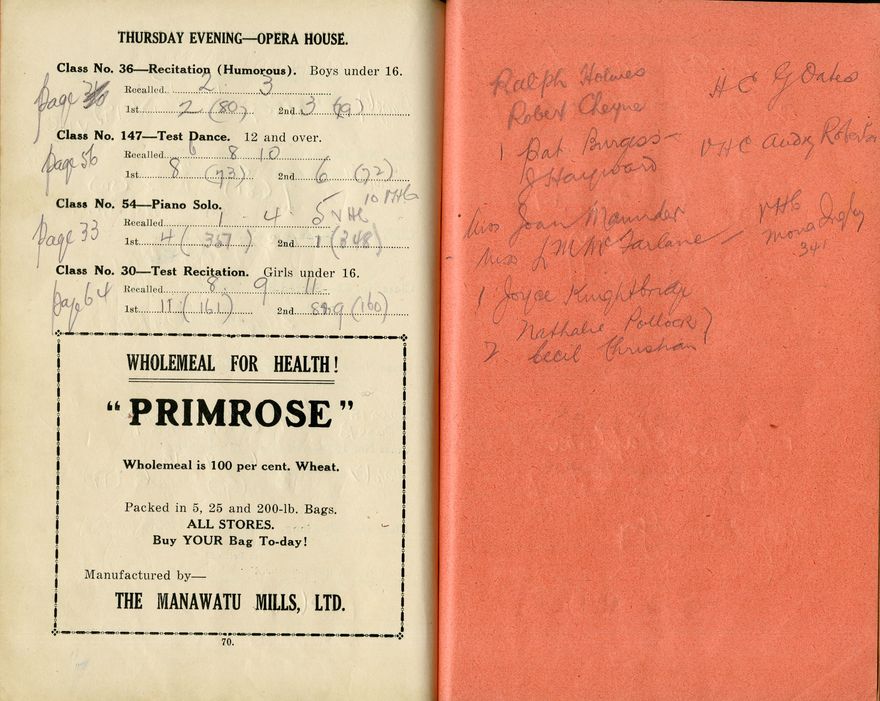 THURSDAY EVENING—OPERA HOUSE.
Class No. 36—Recitation (Humorous). Boys under 16.
page
Recalled 2 3
1st 2 (80) 2nd 3 (79)
Class No. 147—Test Dance. 12 and over.
page 56
Recalled 6 8 10
1st 8 (73) 2nd 6 (72)
10 VHC
Class No. 54—Piano Solo.
page 33
Recalled 1 4 5 VHC
1st 4 (357) 2nd 1 (348)
Class No. 30—Test Recitation. Girls under 16.
page 64
Recalled 8 9 11
1st 11 (161) 2nd 8&9 (160)
WHOLEMEAL FOR HEALTH!
"PRIMROSE"
Wholemeal is 100 per cent. Wheat.
Packed in 5, 25 and 200-lb. Bags.
ALL STORES.
Buy YOUR Bag To-day!
Manufactured by—
THE MANAWATU MILLS, LTD.
70.
Ralph Holmes HC G Oates
Robert Cheyne
1 Pat Burgess VHC Audry Roberts
J Hayward
Miss Joan Maunder VHC
Miss L M McFarlane — Mona Ingley
341
1 Joyce Knightbridge
Nathalie Pollock }
2 Cecil Christian